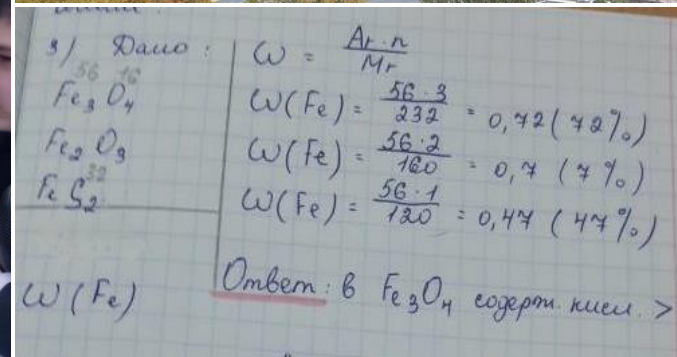 3) Дано:
56 16
Fe₃O₄
Fe₂O₃
32
FeS₂
ω(Fe)
ω = Ar·n / Mr
ω(Fe) = 56·3 / 232 = 0,72 (72%)
ω(Fe) = 56·2 / 160 = 0,7 (7%)
ω(Fe) = 56·1 / 120 = 0,47 (47%)
Ответ: в Fe₃O₄ содерж. кисл. >